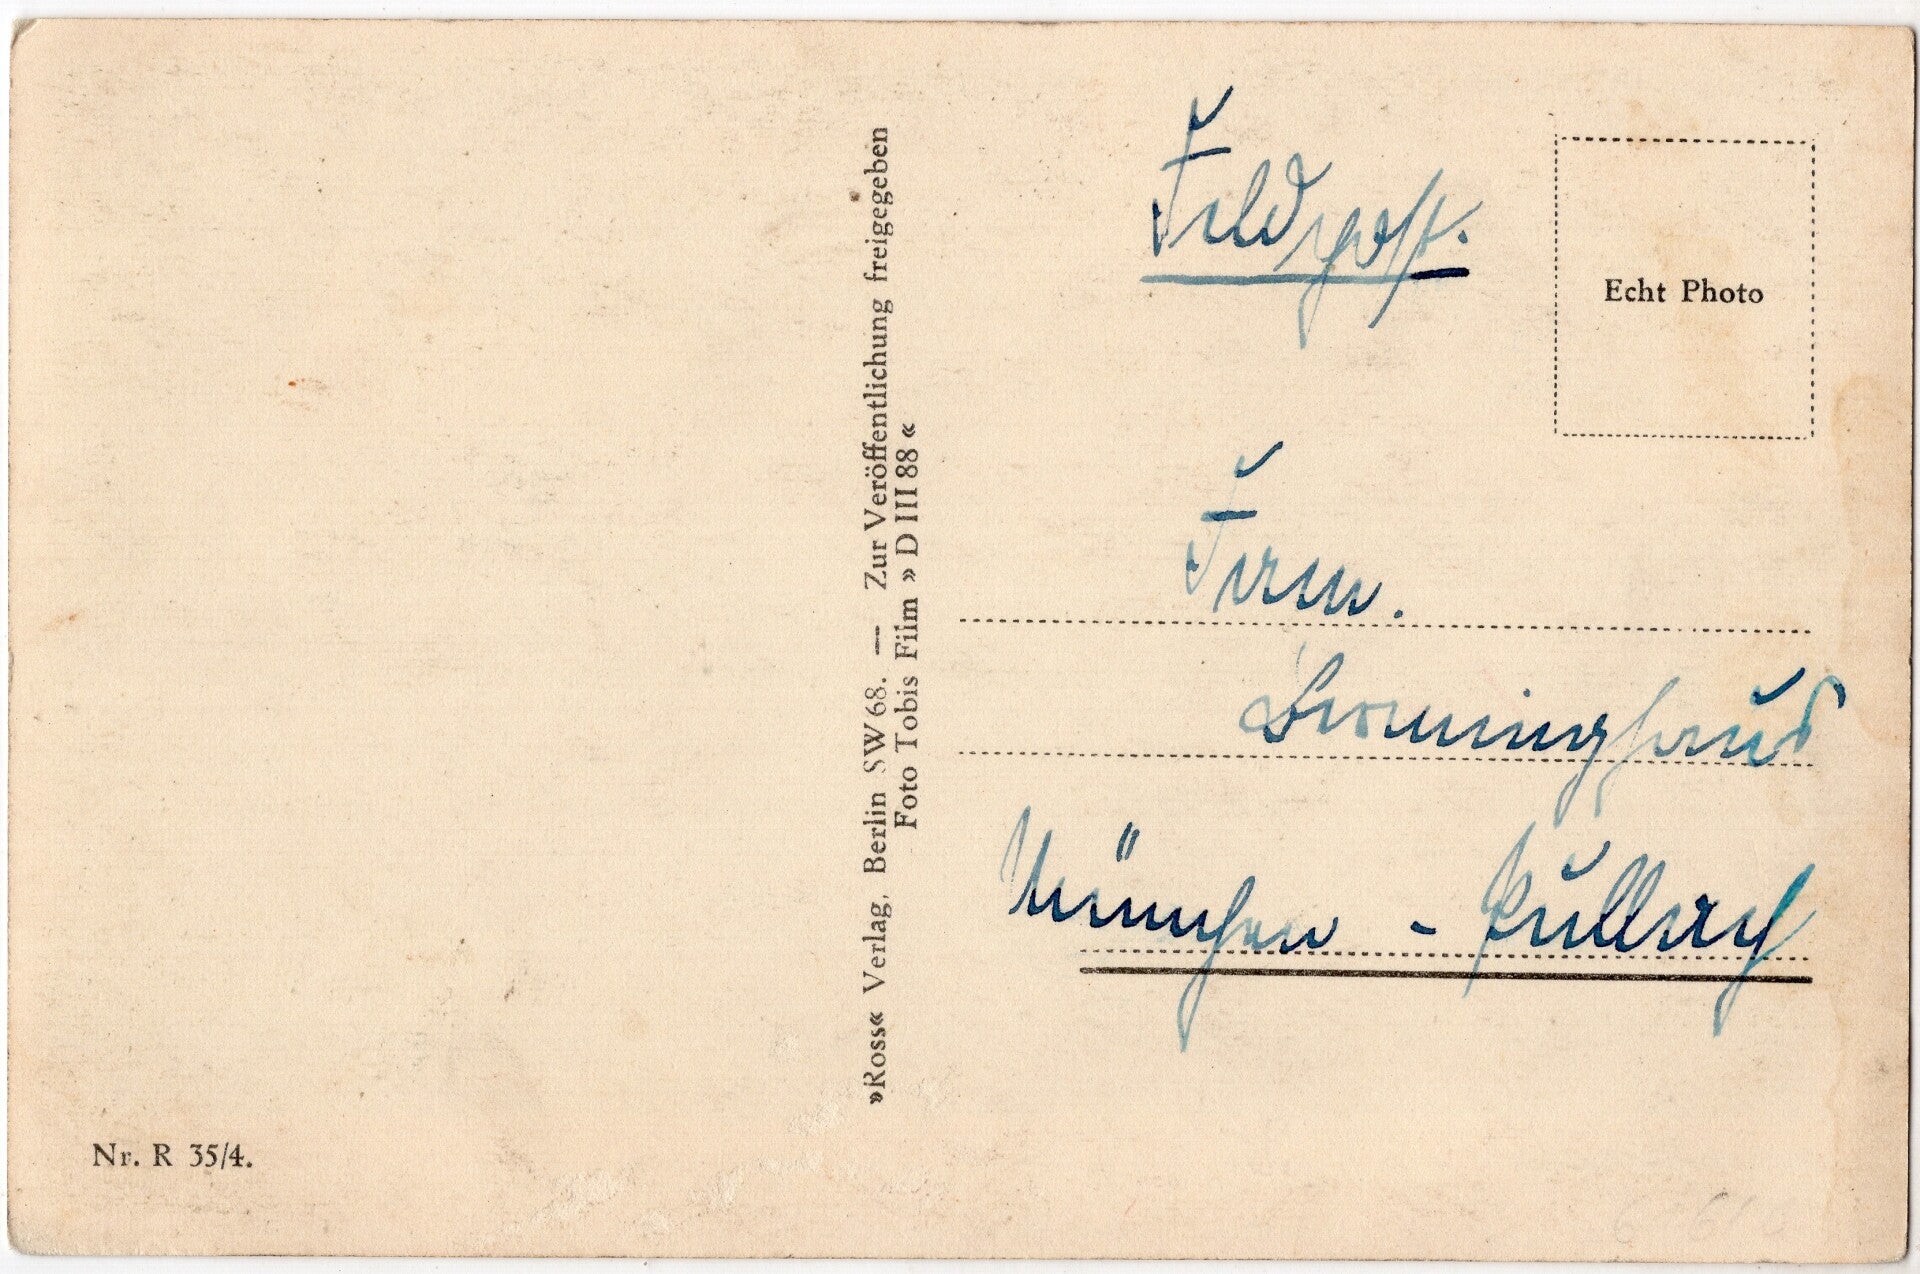 Feldpost.
Echt Photo
»Ross« Verlag, Berlin SW 68. — Zur Veröffentlichung freigegeben
Foto Tobis Film » D III 88 «
Firm.
Berninghaus
München - Pullach
Nr. R 35/4.